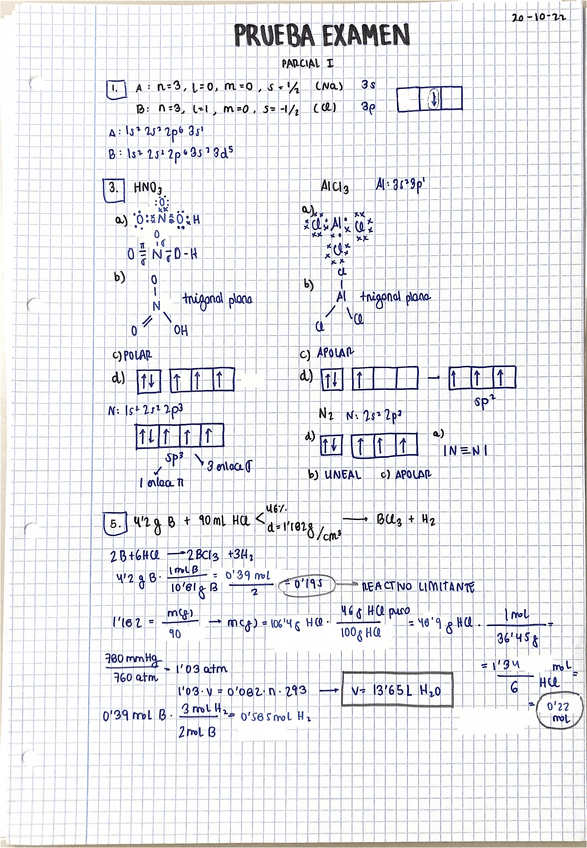 20-10-22
PRUEBA EXAMEN
PARCIAL I
1. A: n=3, l=0, m=0, s=1/2 (Na) 3s
B: n=3, l=1, m=0, s=-1/2 (Cl) 3p ↓
A: 1s² 2s² 2p⁶ 3s¹
B: 1s² 2s² 2p⁶ 3s² 3d⁵
3. HNO₃
a) O N O H
O
O N O-H
b) O
N trigonal plana
O OH
c) POLAR
d) ↑↓ ↑ ↑ ↑
N: 1s² 2s² 2p³
↑↓ ↑ ↑ ↑
sp³
1 enlace π 3 enlace σ
AlCl₃ Al: 3s² 3p¹
a) Cl Al Cl
Cl
b) Cl
Al trigonal plana
Cl Cl
c) APOLAR
d) ↑↓ ↑ → ↑ ↑ ↑
sp²
N₂ N: 2s² 2p³
d) ↑↓ ↑ ↑ ↑ a) |N≡N|
b) LINEAL c) APOLAR
5. 4'2 g B + 90 mL HCl < 46% d=1'182 g/cm³ → BCl₃ + H₂
2B+6HCl → 2BCl₃ +3H₂
4'2 g B · 1 mol B / 10'81 g B = 0'39 mol / 2 = 0'195 → REACTIVO LIMITANTE
1'182 = m(g) / 90 → m(g) = 106'4 g HCl · 46 g HCl puro / 100 g HCl = 48'9 g HCl · 1 mol / 36'45 g =
= 1'34 mol HCl / 6 =
= 0'22 mol
780 mmHg / 760 atm = 1'03 atm
1'03 · v = 0'082 · n · 293 → V = 13'65 L H₂O
0'39 mol B · 3 mol H₂ / 2 mol B = 0'585 mol H₂